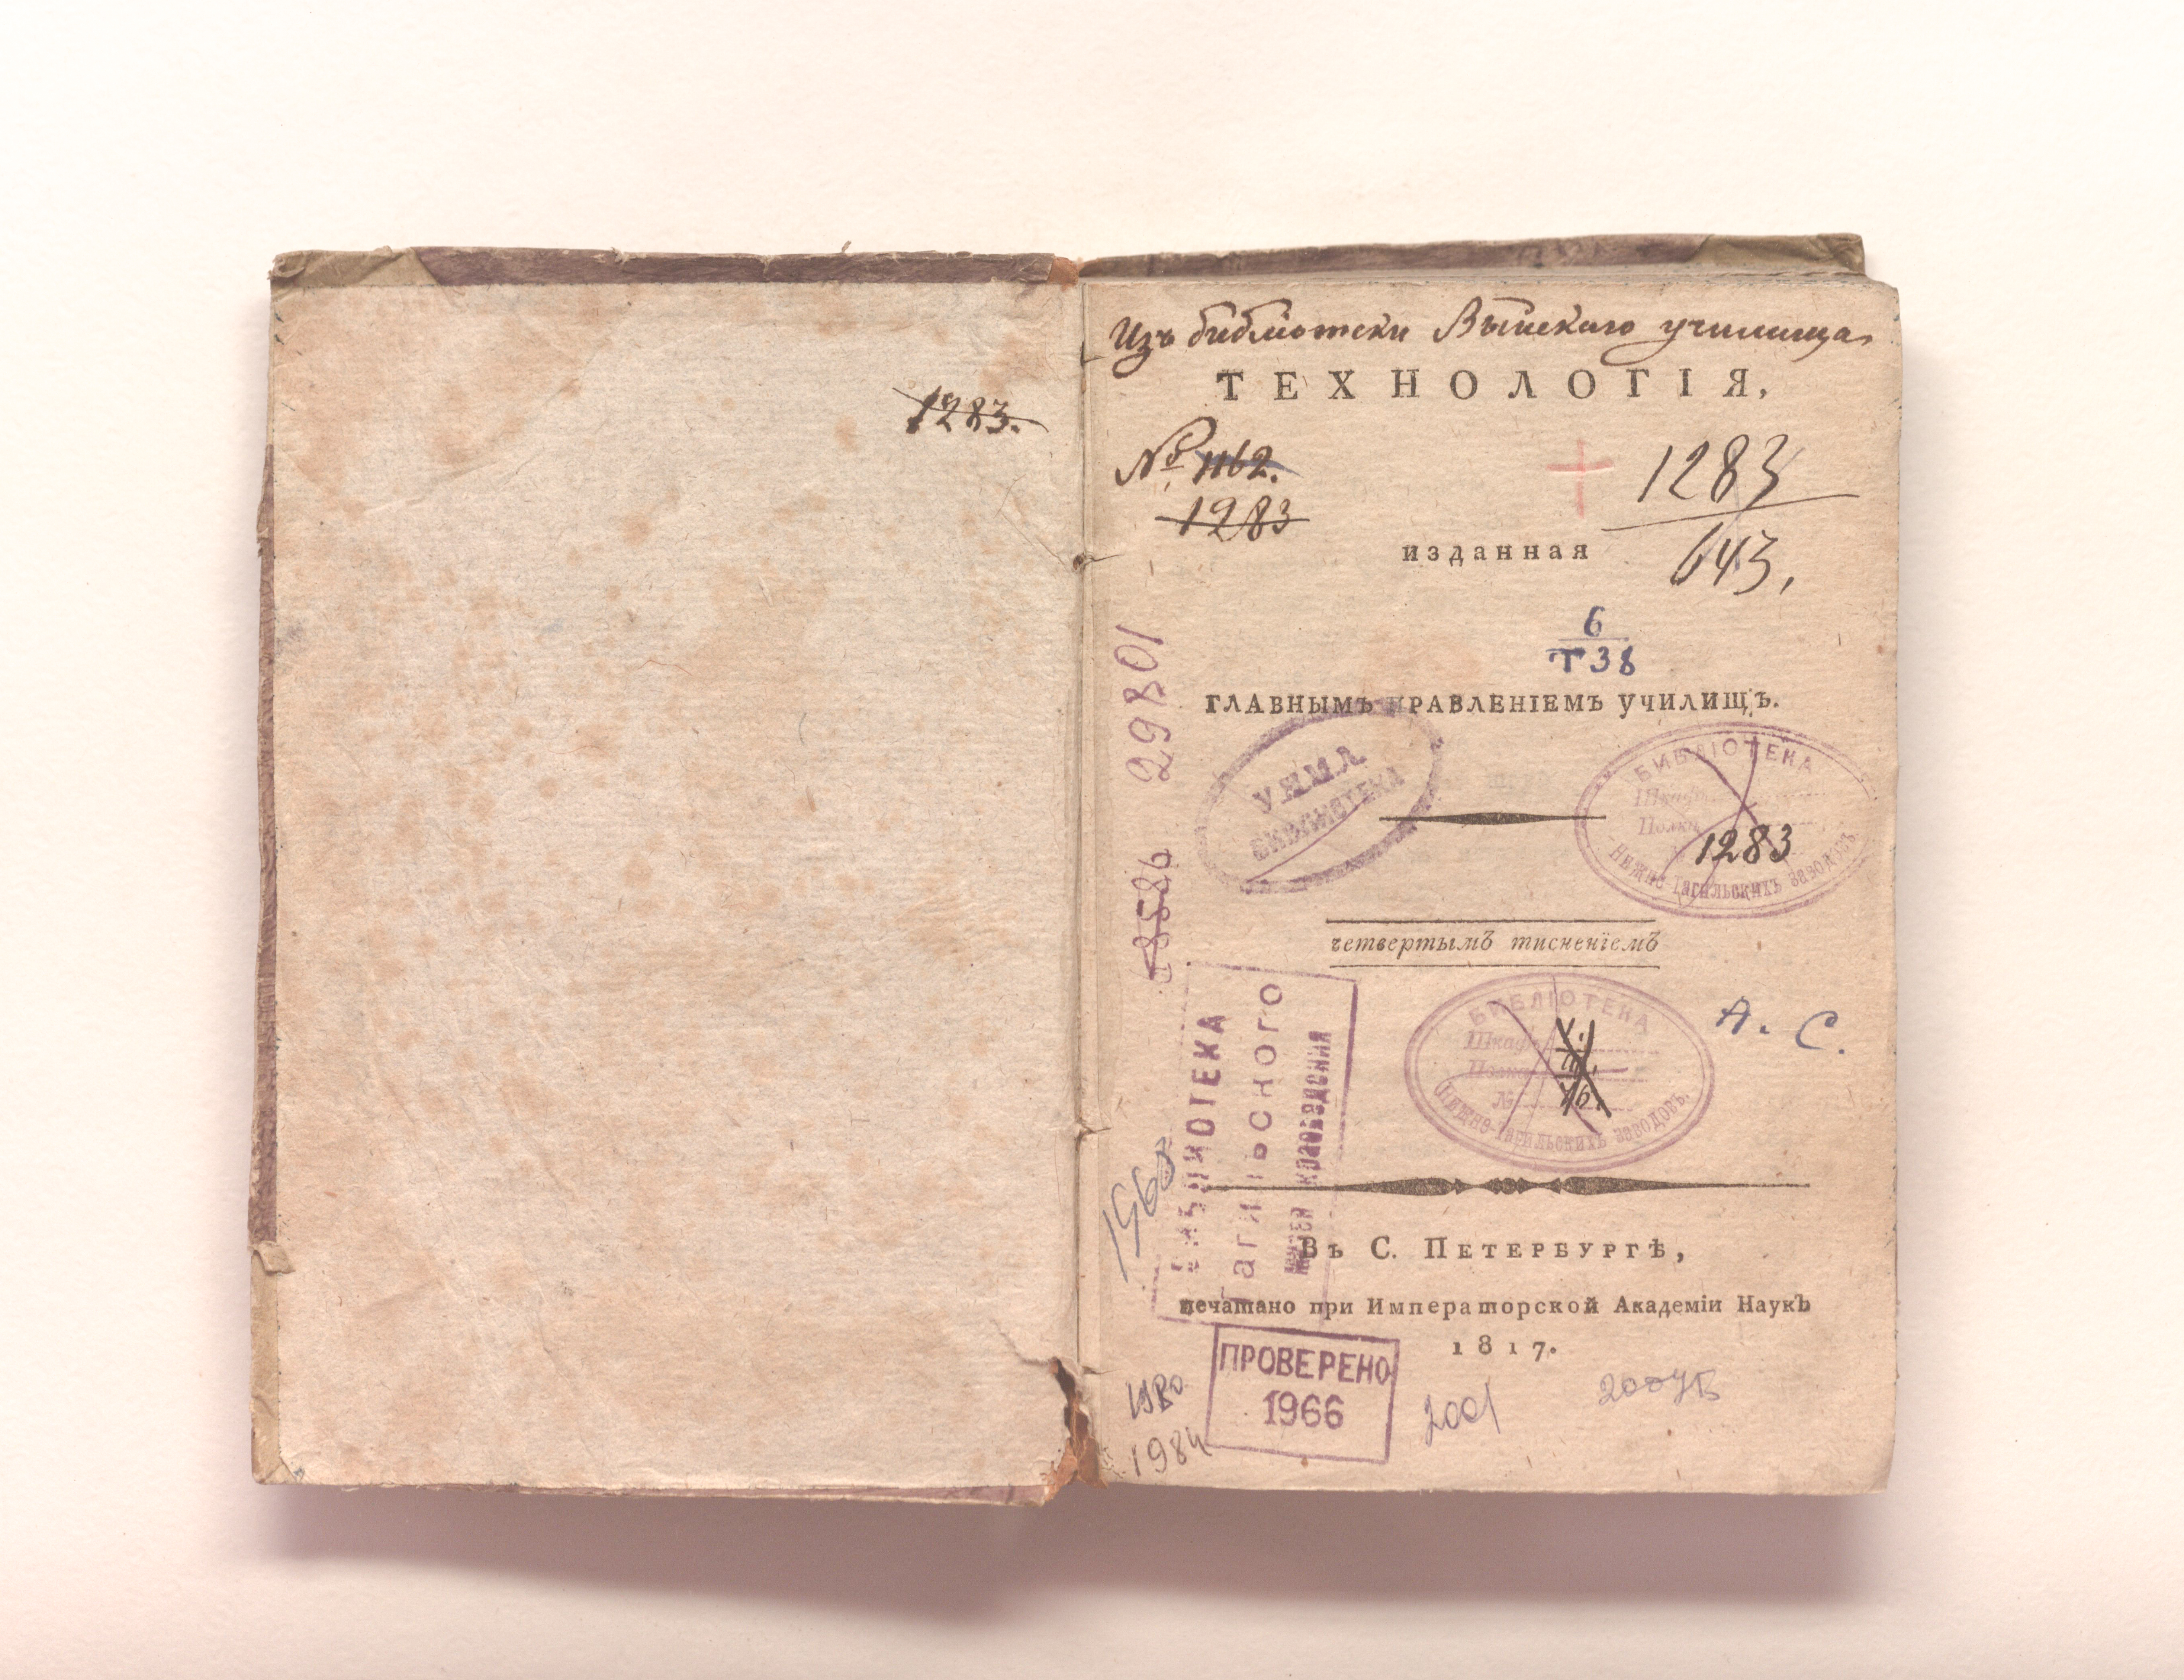 1283.
Изъ библіотеки Выйскаго училища
ТЕХНОЛОГІЯ,
№ 1162.
1283
1283
643.
изданная
6
Т38
ГЛАВНЫМЪ ПРАВЛЕНІЕМЪ УЧИЛИЩЪ.
29801
БИБЛИОТЕКА
БИБЛІОТЕКА
Шкафъ
Полка
1283
Нижне-Тагильскихъ заводовъ
четвертымъ тисненіемъ
БИБЛІОТЕКА
Шкафъ
Полка
№
76.
Нижне-Тагильскихъ заводовъ.
А. С.
БИБЛИОТЕКА
Тагильского
музея краеведения
Въ С. ПЕТЕРБУРГѢ,
печатано при Императорской Академіи Наукъ
1817.
ПРОВЕРЕНО
1966
1984
2001